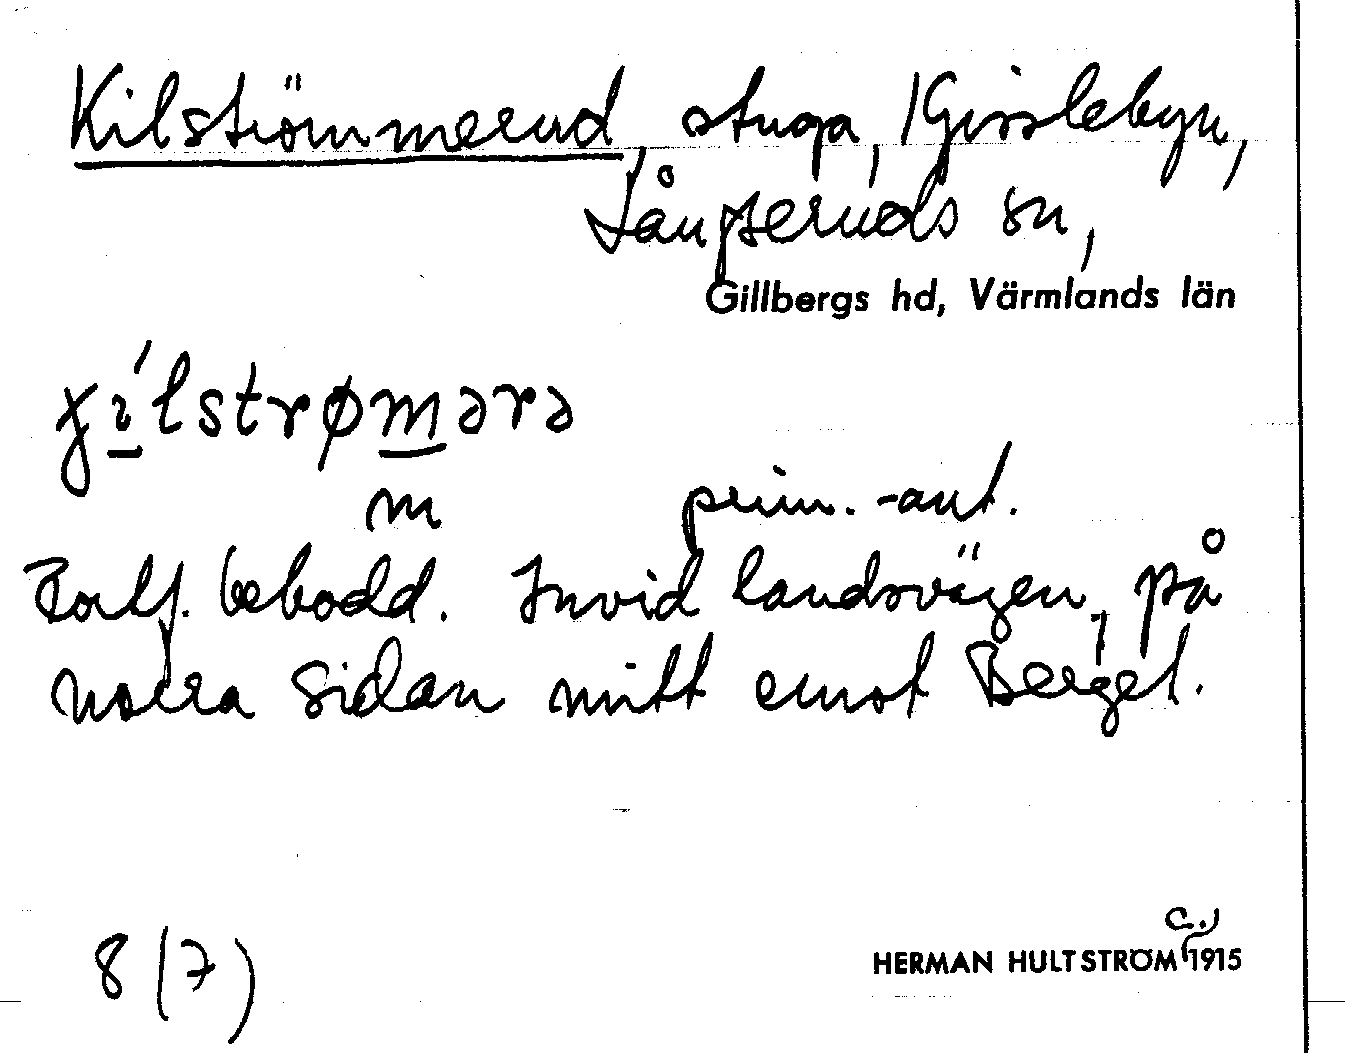 Kilströmmerud, stuga, Gisslebyn,
Långseruds sn,
Gillbergs hd, Värmlands län
χı́lstrømərə
m prim.-ant.
bebodd. Invid landsvägen, på
norra sidan mitt emot Berget.
c.
HERMAN HULTSTRÖM 1915
8 (7)